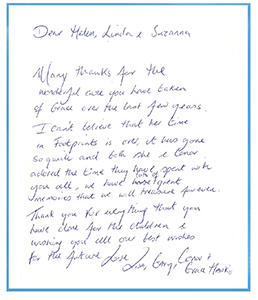 Dear Helen, Linda & Suzanna
Many thanks for the
wonderful care you have taken
of Grace over the last few years.
I can't believe that her time
in Footprints is over, it has gone
so quick and both she & Conor
adored the time they have spent with
you all, we have lots of great
memories that we will treasure forever.
Thank you for everything that you
have done for the children &
wishing you all our best wishes
for the future Love
Gary, Conor &
Grace